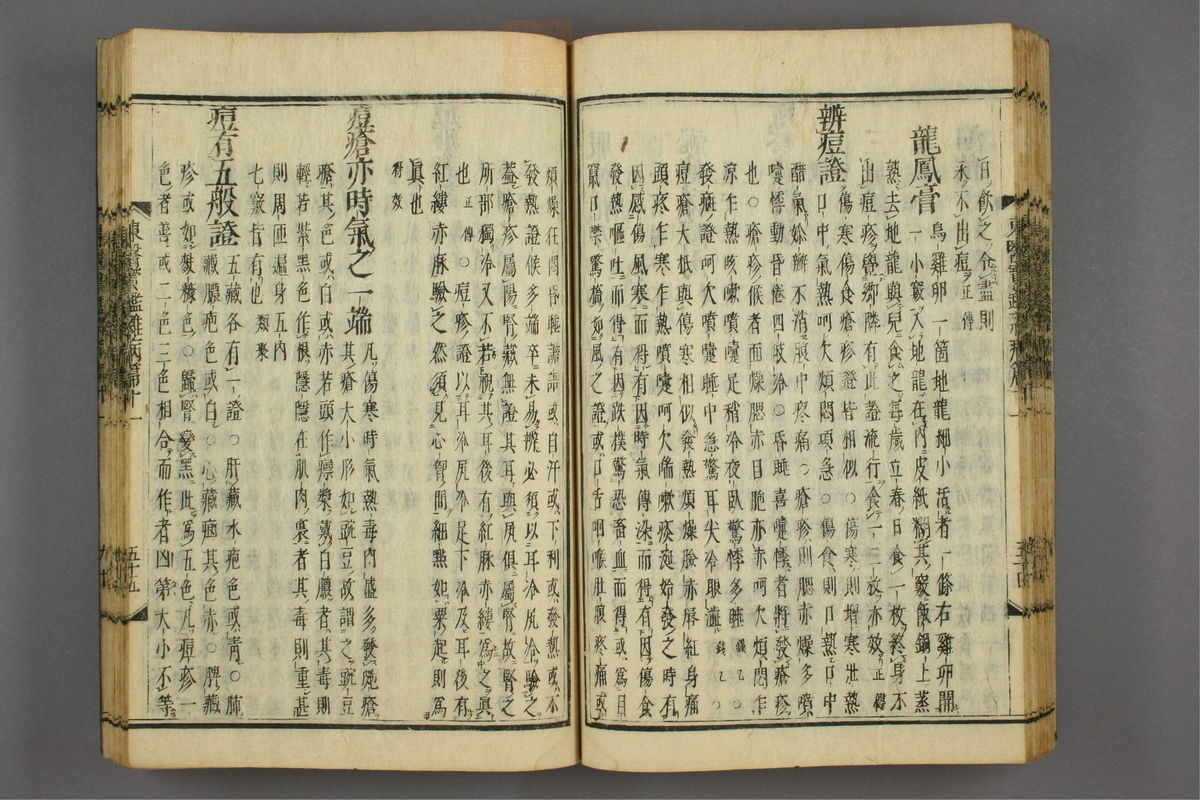 日飮之令盡則
永不出痘正傳
龍鳳膏 烏雞卵一箇地龍細小活者一條右雞卵開
一小竅入地龍在內皮紙糊其竅飯鍋上蒸
熟去地龍與兒食之每歲立春日食一枚終身不
出痘疹覺鄕隣有此證流行食一二枚亦效正傳
辨痘證 傷寒傷食瘡疹證皆相似○傷寒則增寒壯熱
口中氣熱呵欠煩悶項急○傷食則口熱口中
醋氣妳瓣不消腹中疼痛○瘡疹則腮赤燥多噴
嚔悸動昏倦四肢冷○昏睡喜嚔悸者將發瘡疹
也○瘡疹候者面燥腮赤目胞亦赤呵欠煩悶乍
凉乍熱咳嗽噴嚔足稍冷夜臥驚悸多睡錢乙○
發瘡證呵欠噴嚔睡中急驚耳尖冷眼澁錢乙○
痘瘡大抵與傷寒相似發熱煩燥臉赤唇紅身痛
頭疼乍寒乍熱噴嚔呵欠喘嗽痰涎始發之時有
因感傷風寒而得有因時氣傳染而得有因傷食
發燥嘔吐而得有因跌撲驚恐畜血而得或爲目
竄口噤驚搐如風之證或口舌咽喉肚腹疼痛或
煩燥悶昏睡譫語或自汗或下利或發熱或不
發熱證候多端卒未易辨必須以耳冷尻冷驗之
蓋瘡疹屬陽腎藏無證其耳與尻俱屬腎故腎之
所部獨冷又不若視其耳後有紅脉赤縷爲之眞
也正傳○痘疹證以耳冷尻冷足下冷及耳後有
紅縷赤脉驗之然須見心胷間細點如粟起則爲
眞也
得效
痘瘡亦時氣之一端 凡傷寒時氣熱毒內盛多發疱瘡
其瘡大小形如豌豆故謂之豌豆
瘡其色或白或赤若頭作瘭漿戴白膿者其毒則
輕若紫黑色作根隱隱在肌肉裏者其毒則重甚
則周匝遍身五內
七竅皆有也類聚
痘有五般證 五藏各有一證○肝藏水疱色或靑○肺
藏膿疱色或白○心藏㾦其色赤○脾藏
疹或如麩糠色○歸腎變黑此爲五色凡痘疹一
色者善或二色三色相合而作者凶第大小不等
東醫寶鑑雜病篇十一
五十五
五十四